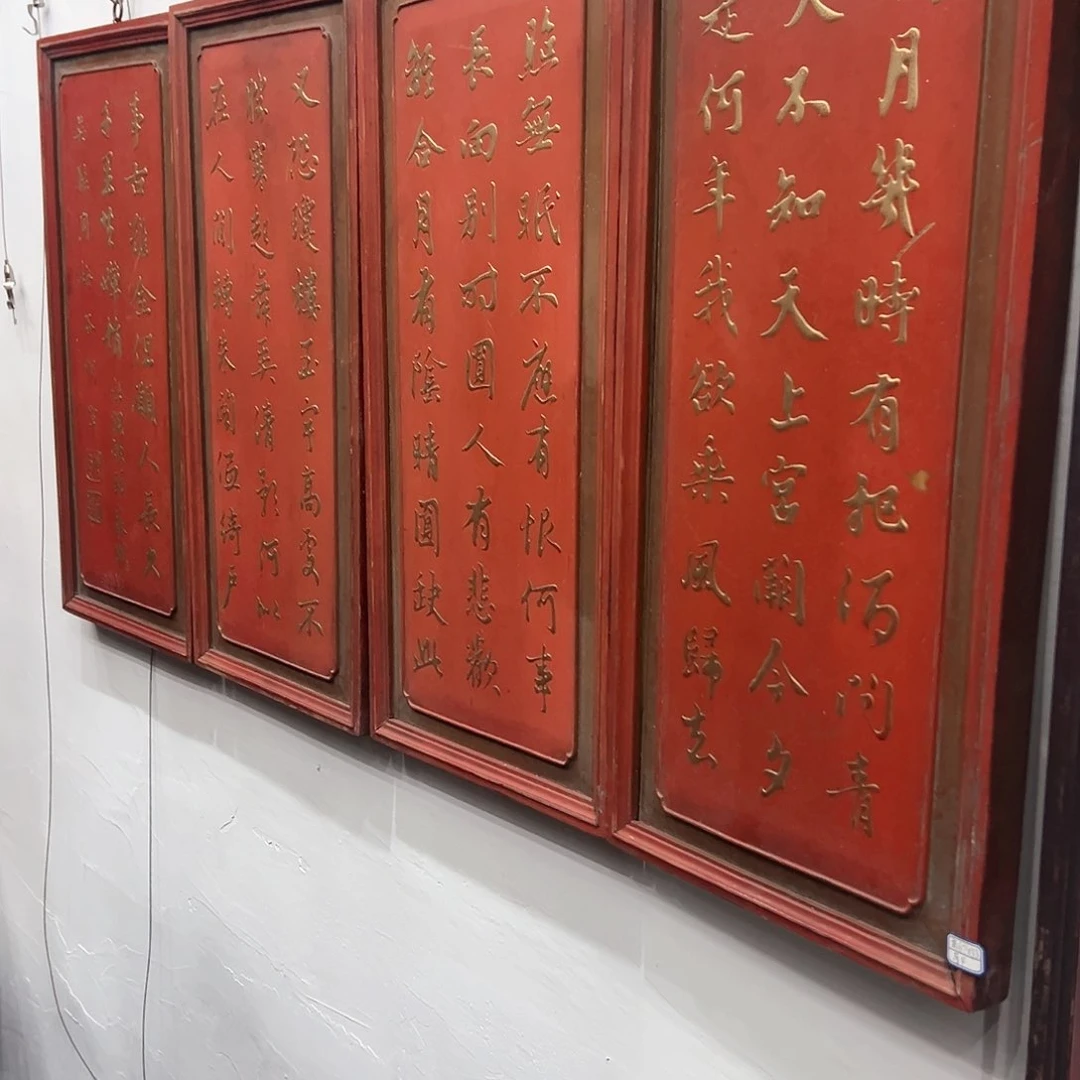 月幾時有把酒問青
天不知天上宮闕今夕
是何年我欲乘風歸去
照無眠不應有恨何事
長向別時圓人有悲歡
離合月有陰晴圓缺此
又恐瓊樓玉宇高處不
勝寒起舞弄清影何似
在人間轉朱閣低綺戶
事古難全但願人長久
千里共嬋娟